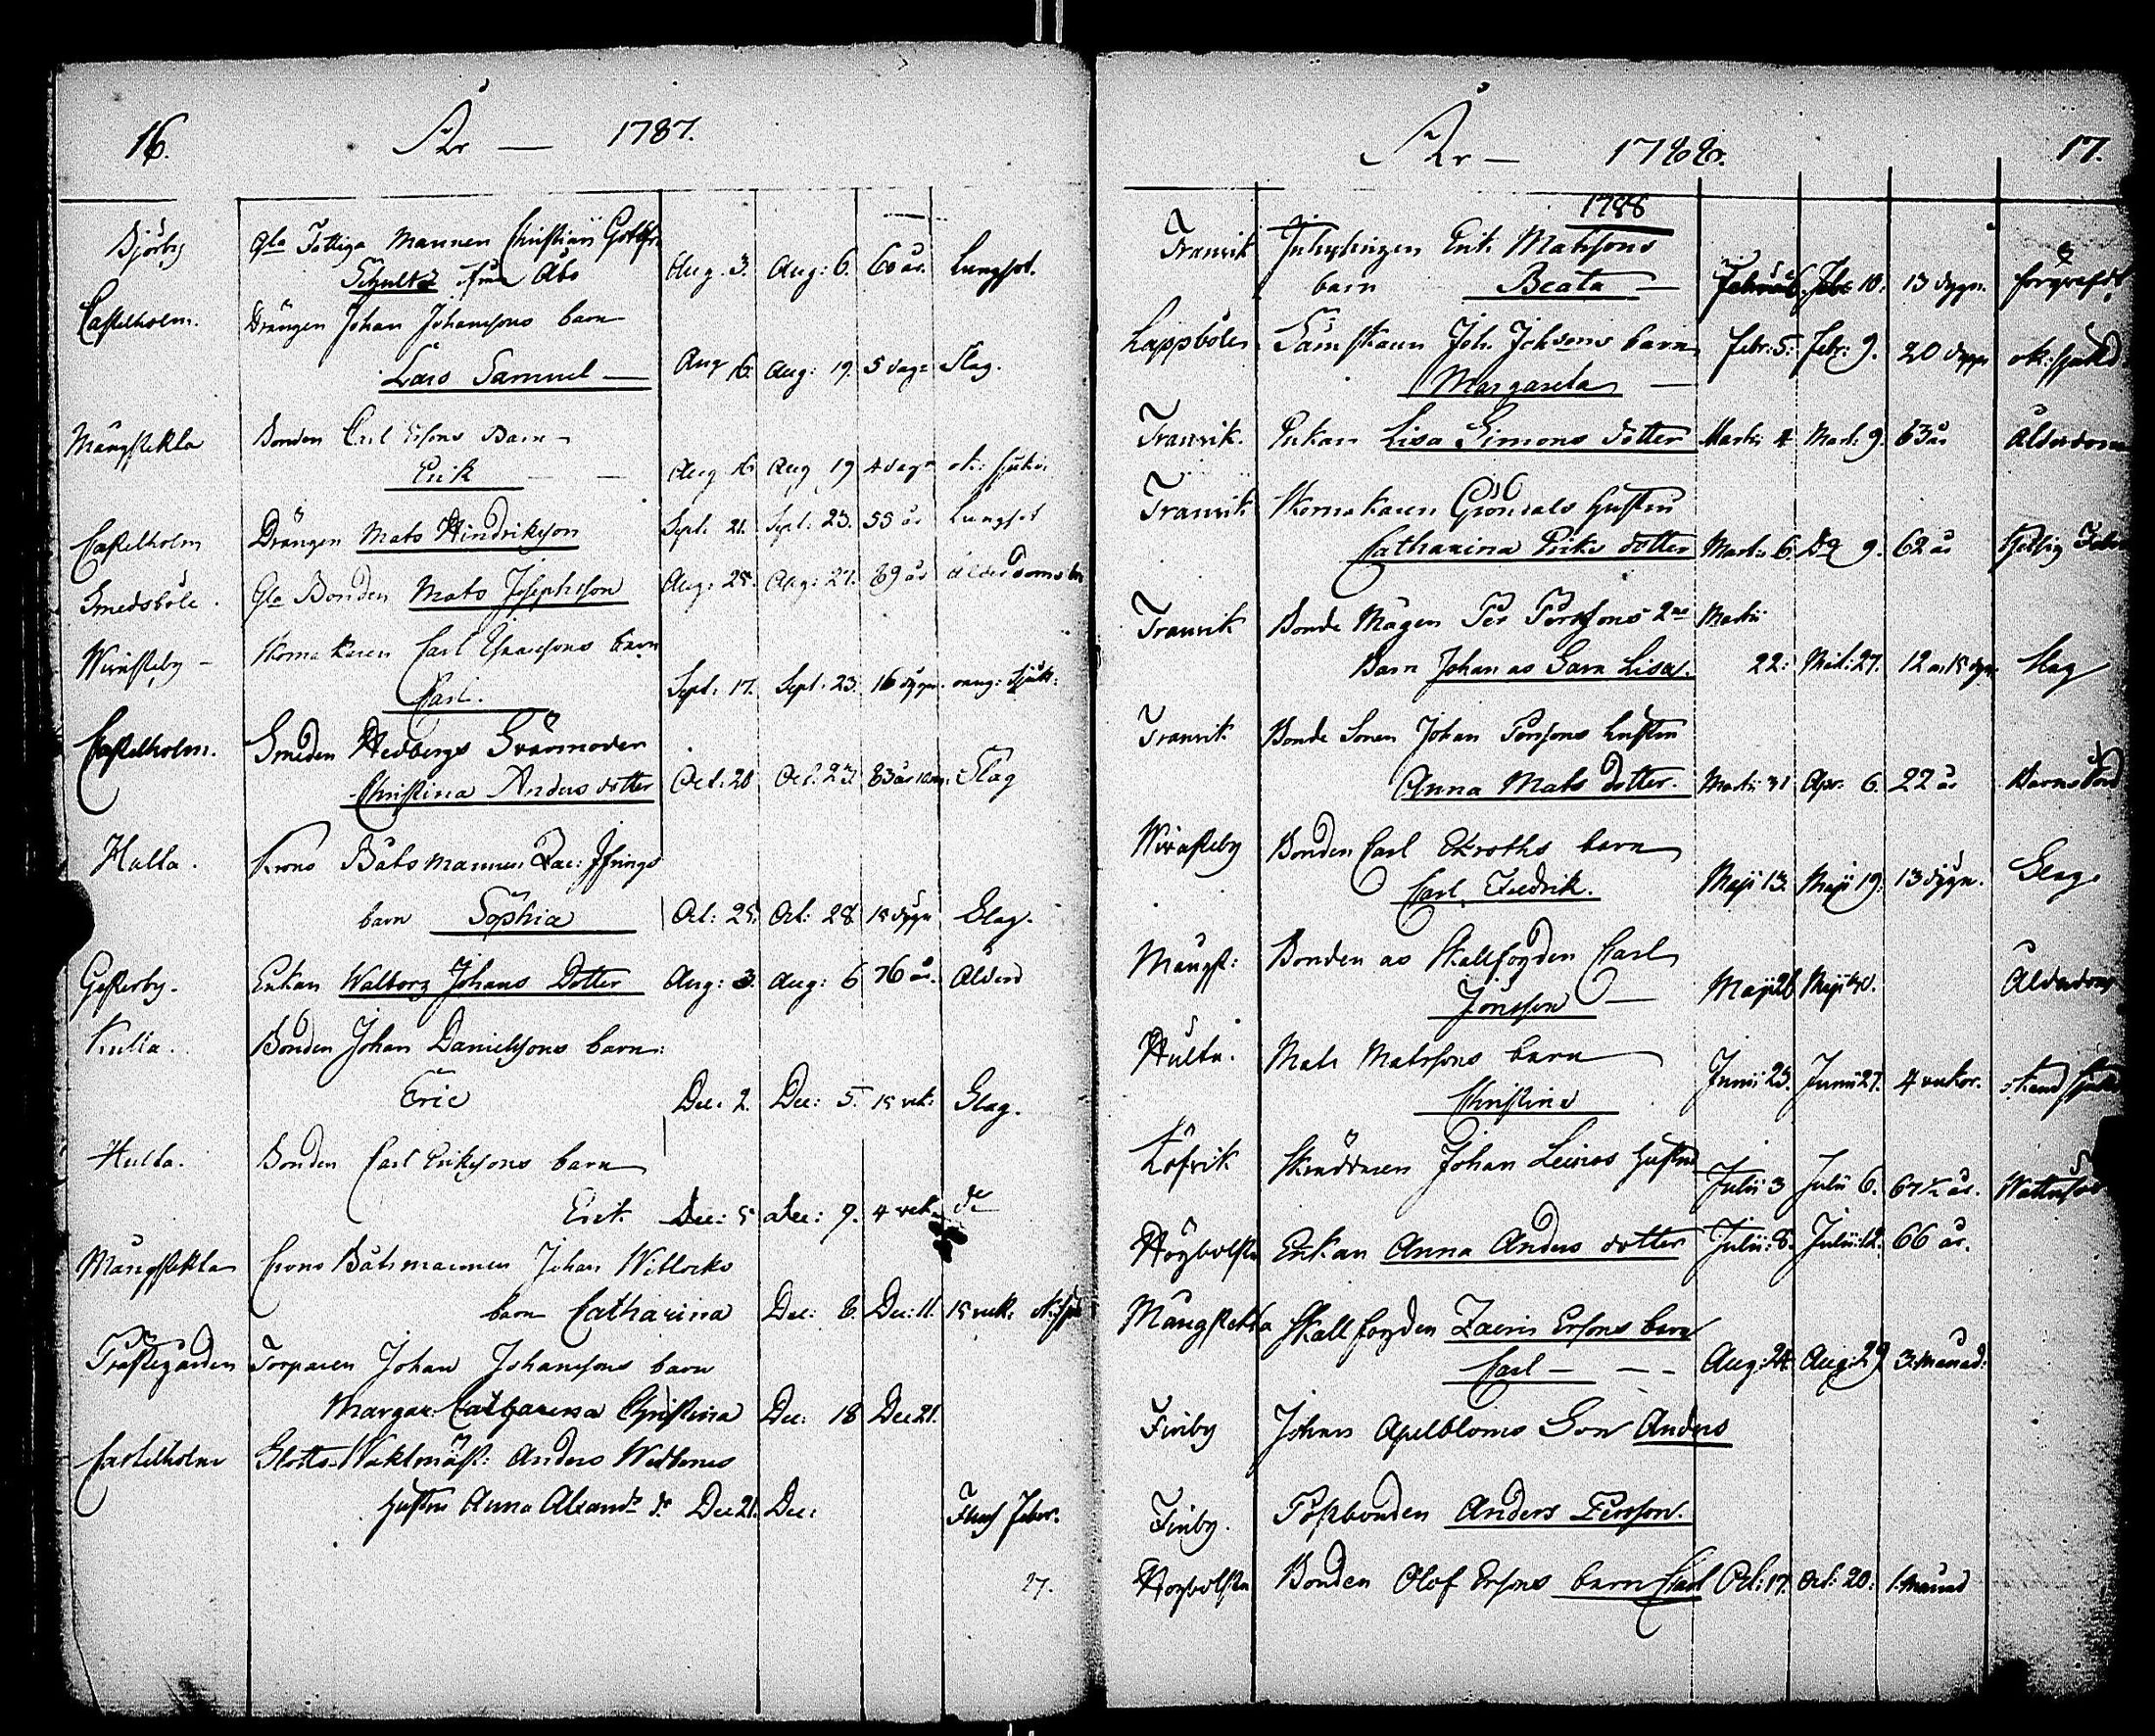 16. År — 1787.
Björby Gla Fattiga Mannen Christian Gottfr.
Schultz ifrån Åbo Aug. 3. Aug: 6. 60 år. Lungsot.
Castelholm. Drängen Johan Johanssons barn
Lars Samuel — Aug 16. Aug: 19. 5 dag: Slag.
Mångstekta Bonden Carl Ersons Barn
Erik — — Aug 16 Aug 19 4 dag: ok: sjukd:
Castelholm Drängen Mats Hindriksson Sept. 21. Sept. 23. 55 år Lungsot
Smedsböle. Gla Bonden Mats Josephsson Aug: 25. Aug: 27. 89 år ålderdoms
Wivasteby — Skomakaren Carl barn
Carl. Sept. 17. Sept. 23. 16 dygn. sjukd:
Castelholm. Smeden Hedbergs Svärmoder
Christina Anders dotter Oct. 20 Oct. 23. 83 år Slag
Hulta. Krons Båtsmannen
barn Sophia Oct: 25. Oct: 28. 15 dygn Slag.
Gesterby. Enkan Walborg Johans Dotter Aug: 3. Aug: 6 76 år. Ålderd
Kulla. Bonden Johan Danielssons barn:
Eric Dec. 2. Dec: 5. 15 vek: Slag.
Hulta. Bonden Carl Erikssons barn
Erik Dec: 5 Dec: 9. 4 vek. do
Mångstekta Crons Båtsmannen Johan Witlocks
barn Catharina Dec: 8. Dec: 11. 15 vek.
Prästegården Torparen Johan Johanssons barn
Margar: Catharina Christina Dec: 18 Dec 21.
Castelholm Slotts-Waktmäst: Anders
hustru Anna dr Dec 21. Dec: Feber.
27.
År — 1788. 17.
1788
Tranvik Inhysingen Erik Matssons
barn Beata — Febr. 10. 13 dygn.
Lappböle. Barn
Margareta — Febr: 5: Febr: 9. 20 dygn ok: sjukd.
Tranvik. Enkan Lisa Simons dotter Martii 4 Mart: 9. 63 år Ålderdom
Tranvik Skomakaren Gröndals hustru
Catharina Eriks dotter Martii 6. Do 9. 62 år
Tranvik Bonde Mågen Per Perssons 2ne Martii
Barn Johan as Sara Lisa. 22: Mart: 27. Slag
Tranvik Bonde Sonen Johan Perssons hustru
Anna Mats dotter. Martii 31 Apr. 6. 22 år Barnsbörd
Wivasteby Bonden Carl Ekroths barn
Carl Fredrik. Maji 13. Maji 19. 13 dygn. Slag
Mångst: Bonden as Skallfogden Carl
Jönsson — Maji 26 Maji 30. Ålderdom
Hulta. Mats Matssons barn
Christina Junii 25. Junii 27. 4 vekor.
Lofvik Skräddaren Johan hustru
Julii 3 Julii 6. 67 1/2 år. Wattusot
Högbolsta Enkan Anna Anders dotter Julii: 8. Julii: 12. 66 år.
Mångstekta Skallfogden Ersons barn
Carl — — — Aug: 24. Aug: 29 3. månad:
Finby Johans Apelbloms Son Anders
Finby. Postbonden Anders Persson.
Högbolsta Bonden Olof Ersons barn Carl Oct: 17. Oct: 20: 1. månad